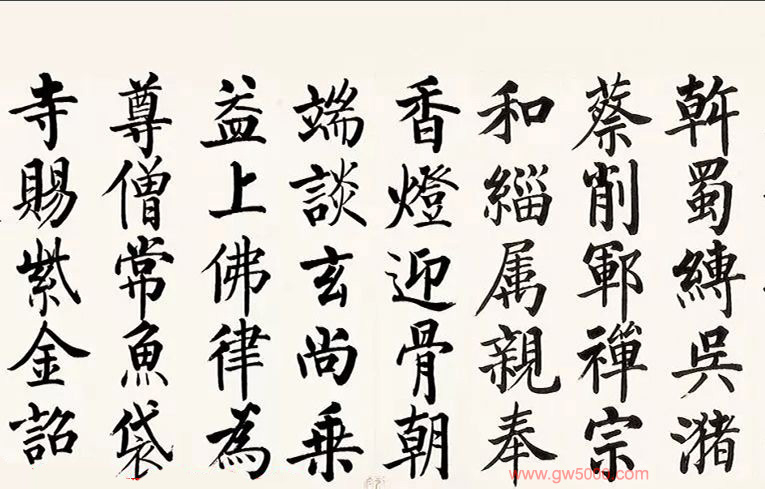 斡蜀縛吳瀦
蔡削鄆禪宗
和緇属親奉
香燈迎骨朝
端談玄尚乗
益上佛律為
尊僧常魚袋
寺賜紫金詔
www.gw5000.com